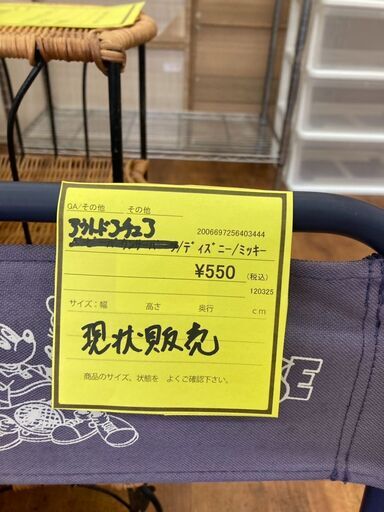 GA/その他 その他
アウトドアチェア
2006697256403444
/ディズニー/ミッキー
¥550 (税込)
120325
サイズ:幅 高さ 奥行 cm
現状販売
商品のサイズ、状態を よくご確認下さい。
SE